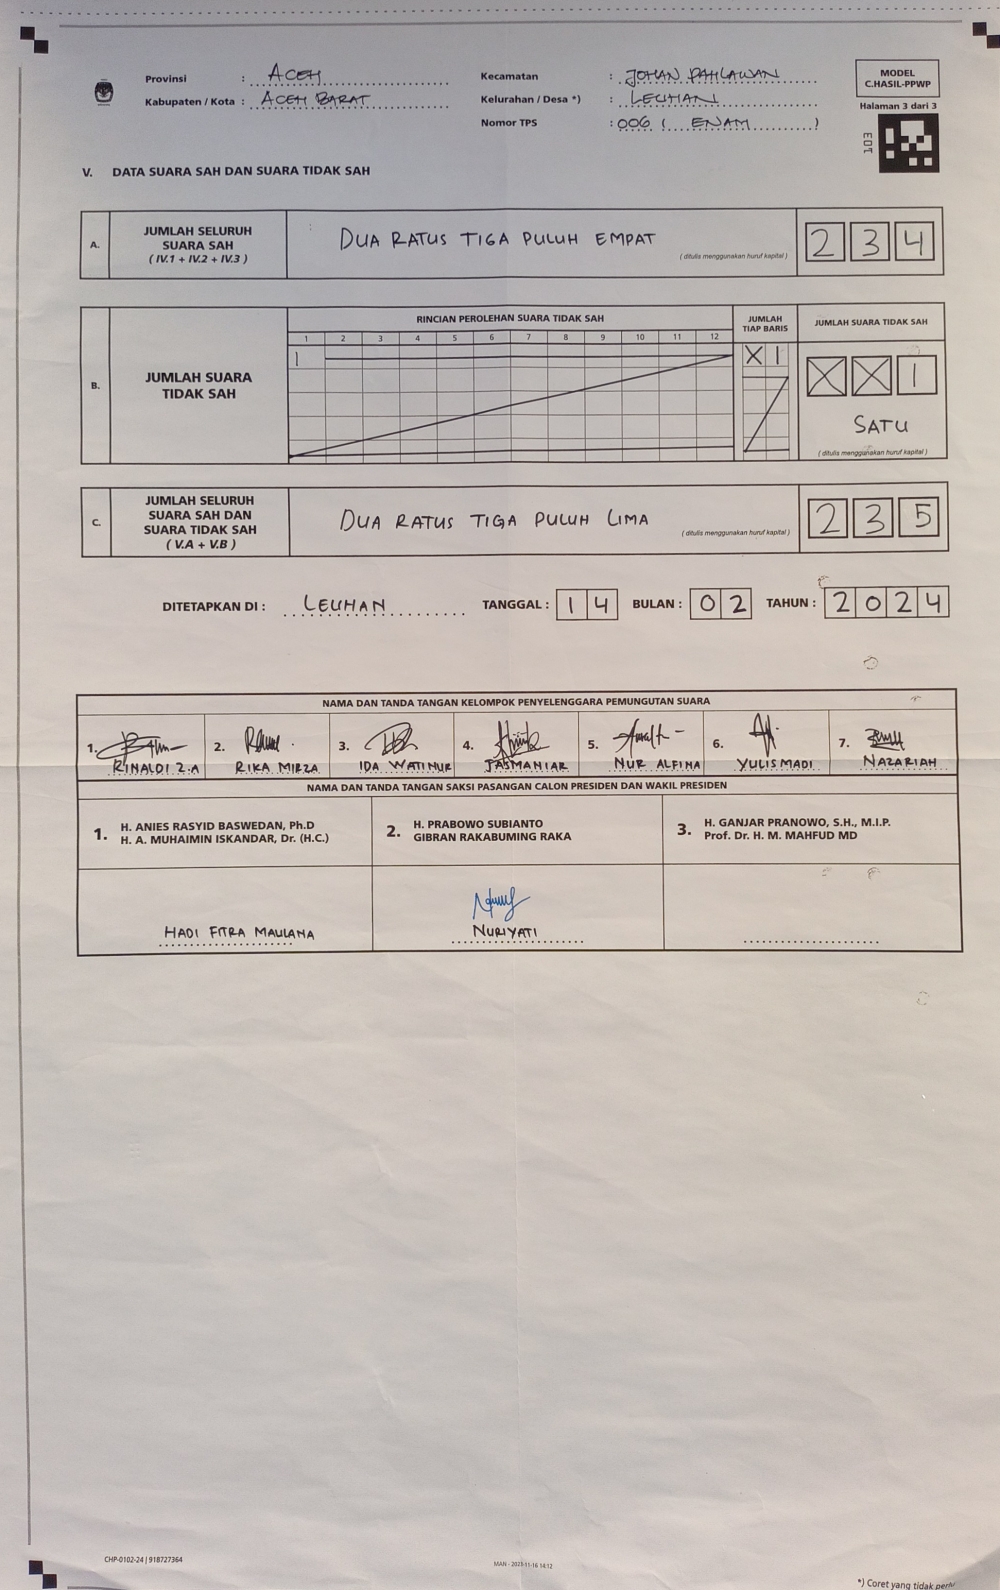 Provinsi : ACEH
Kabupaten / Kota : ACEH BARAT
Kecamatan : JOHAN PAHLAWAN
Kelurahan / Desa *) : LEUHAN
Nomor TPS : 006 ( ENAM )
MODEL
C.HASIL-PPWP
Halaman 3 dari 3
V. DATA SUARA SAH DAN SUARA TIDAK SAH
A. JUMLAH SELURUH
SUARA SAH
( IV.1 + IV.2 + IV.3 )
DUA RATUS TIGA PULUH EMPAT
( ditulis menggunakan huruf kapital )
2 3 4
B. JUMLAH SUARA
TIDAK SAH
RINCIAN PEROLEHAN SUARA TIDAK SAH
1 2 3 4 5 6 7 8 9 10 11 12
JUMLAH
TIAP BARIS
X 1
JUMLAH SUARA TIDAK SAH
X X 1
SATU
( ditulis menggunakan huruf kapital )
C. JUMLAH SELURUH
SUARA SAH DAN
SUARA TIDAK SAH
( V.A + V.B )
DUA RATUS TIGA PULUH LIMA
( ditulis menggunakan huruf kapital )
2 3 5
DITETAPKAN DI : LEUHAN TANGGAL : 1 4 BULAN : 0 2 TAHUN : 2 0 2 4
NAMA DAN TANDA TANGAN KELOMPOK PENYELENGGARA PEMUNGUTAN SUARA
1. 2. 3. 4. 5. 6. 7.
RINALDI Z.A RIKA MIRZA IDA WATINUR JASMANIAR NUR ALFINA YULISMADI NAZARIAH
NAMA DAN TANDA TANGAN SAKSI PASANGAN CALON PRESIDEN DAN WAKIL PRESIDEN
1. H. ANIES RASYID BASWEDAN, Ph.D
H. A. MUHAIMIN ISKANDAR, Dr. (H.C.)
2. H. PRABOWO SUBIANTO
GIBRAN RAKABUMING RAKA
3. H. GANJAR PRANOWO, S.H., M.I.P.
Prof. Dr. H. M. MAHFUD MD
HADI FITRA MAULANA
NURIYATI
CHP-0102-24 | 918727364
MAN - 2023-11-16 14:12
*) Coret yang tidak perlu